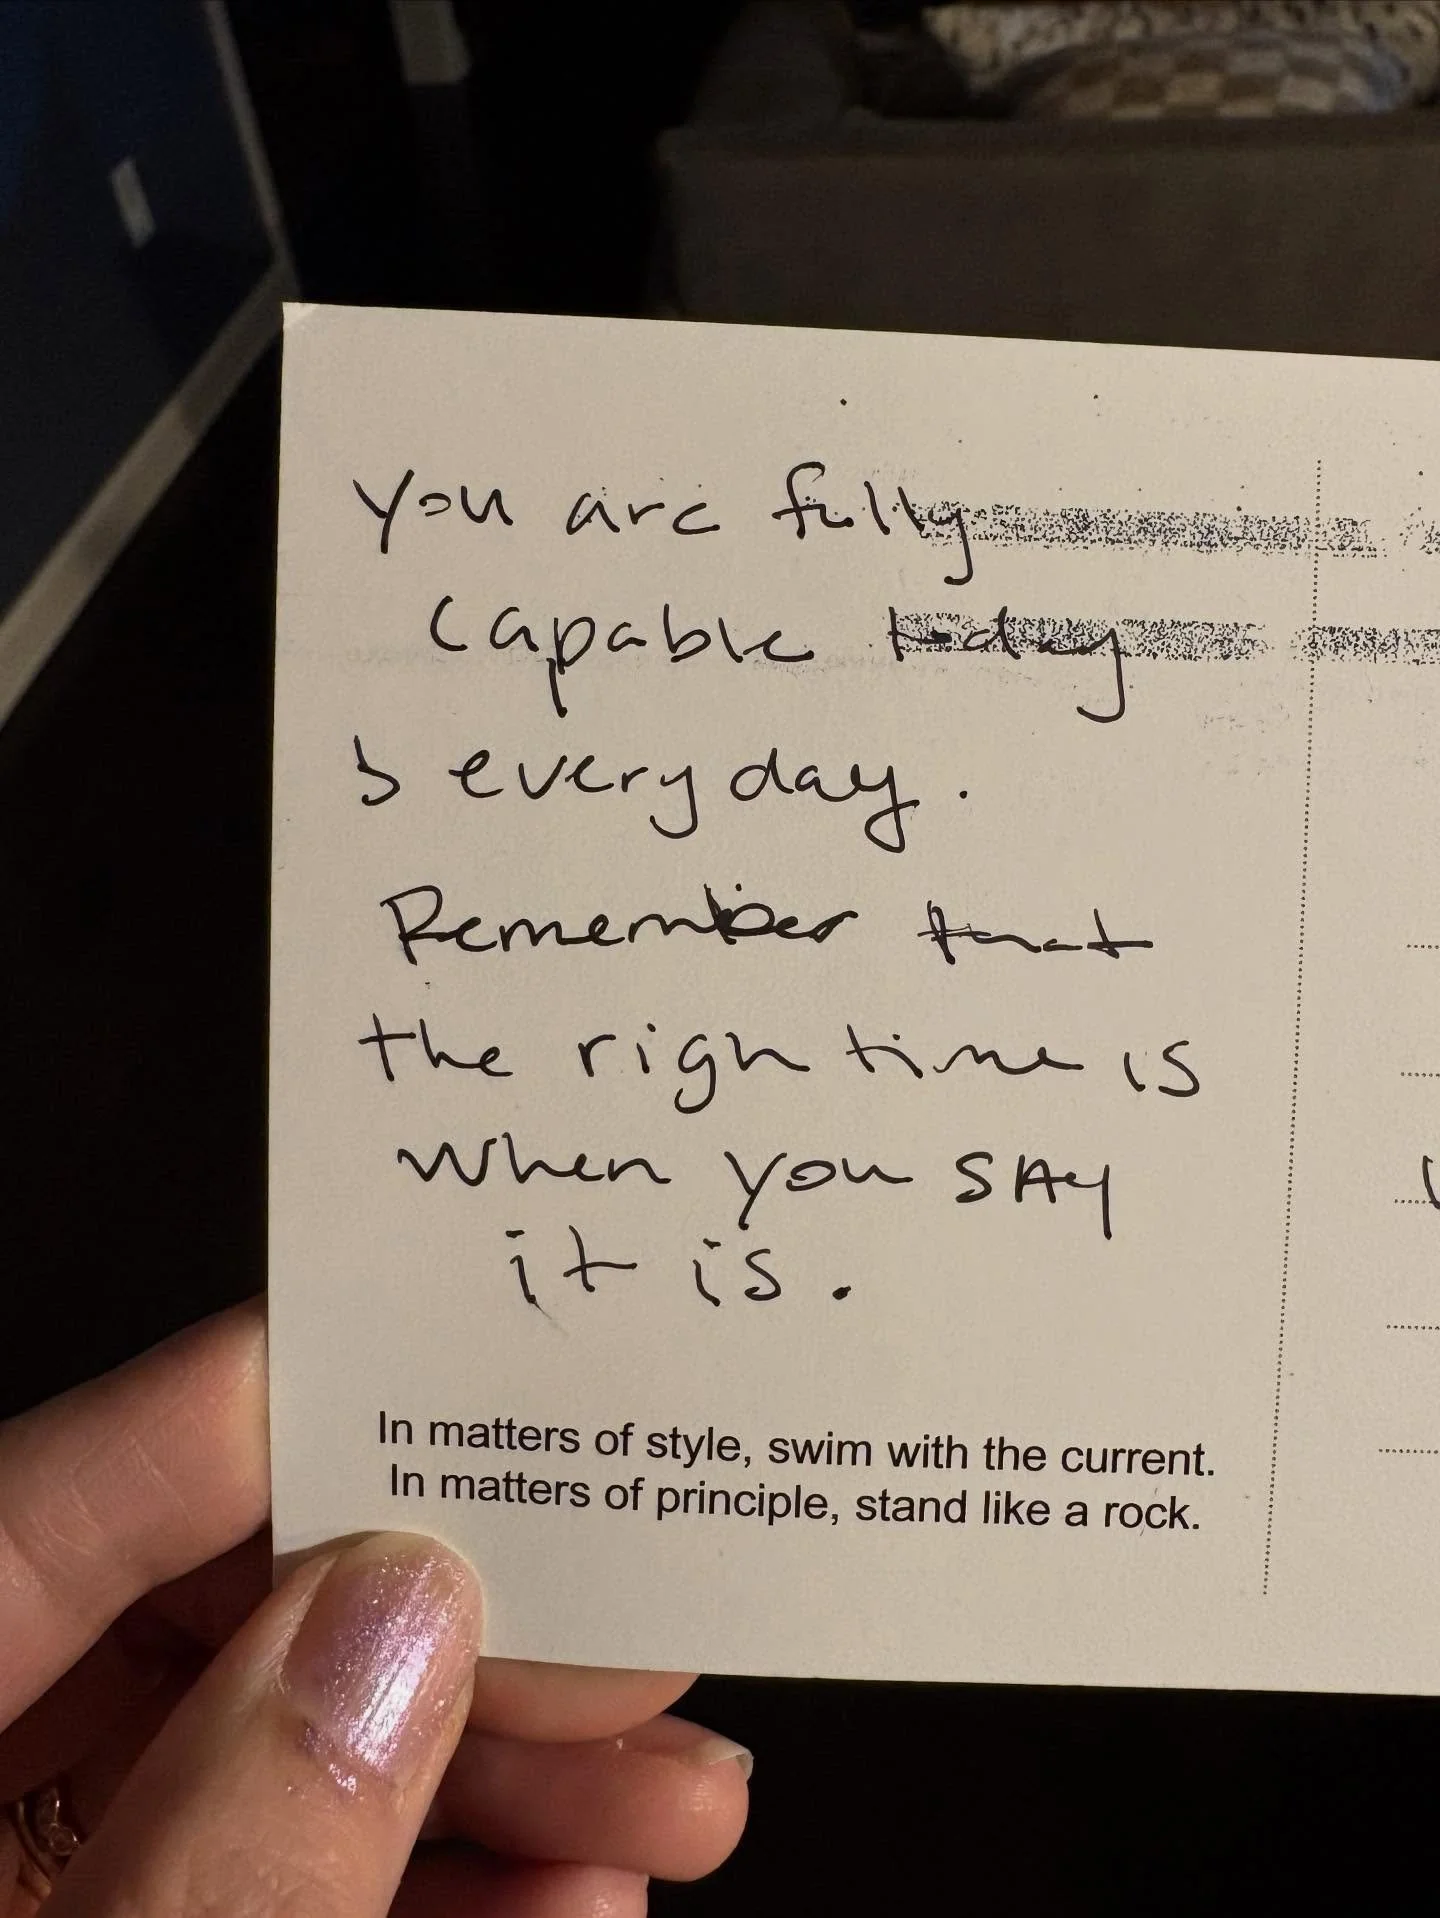 You are fully
capable today
& everyday.
Remember that
the righ time is
when you SAy
it is.
In matters of style, swim with the current.
In matters of principle, stand like a rock.